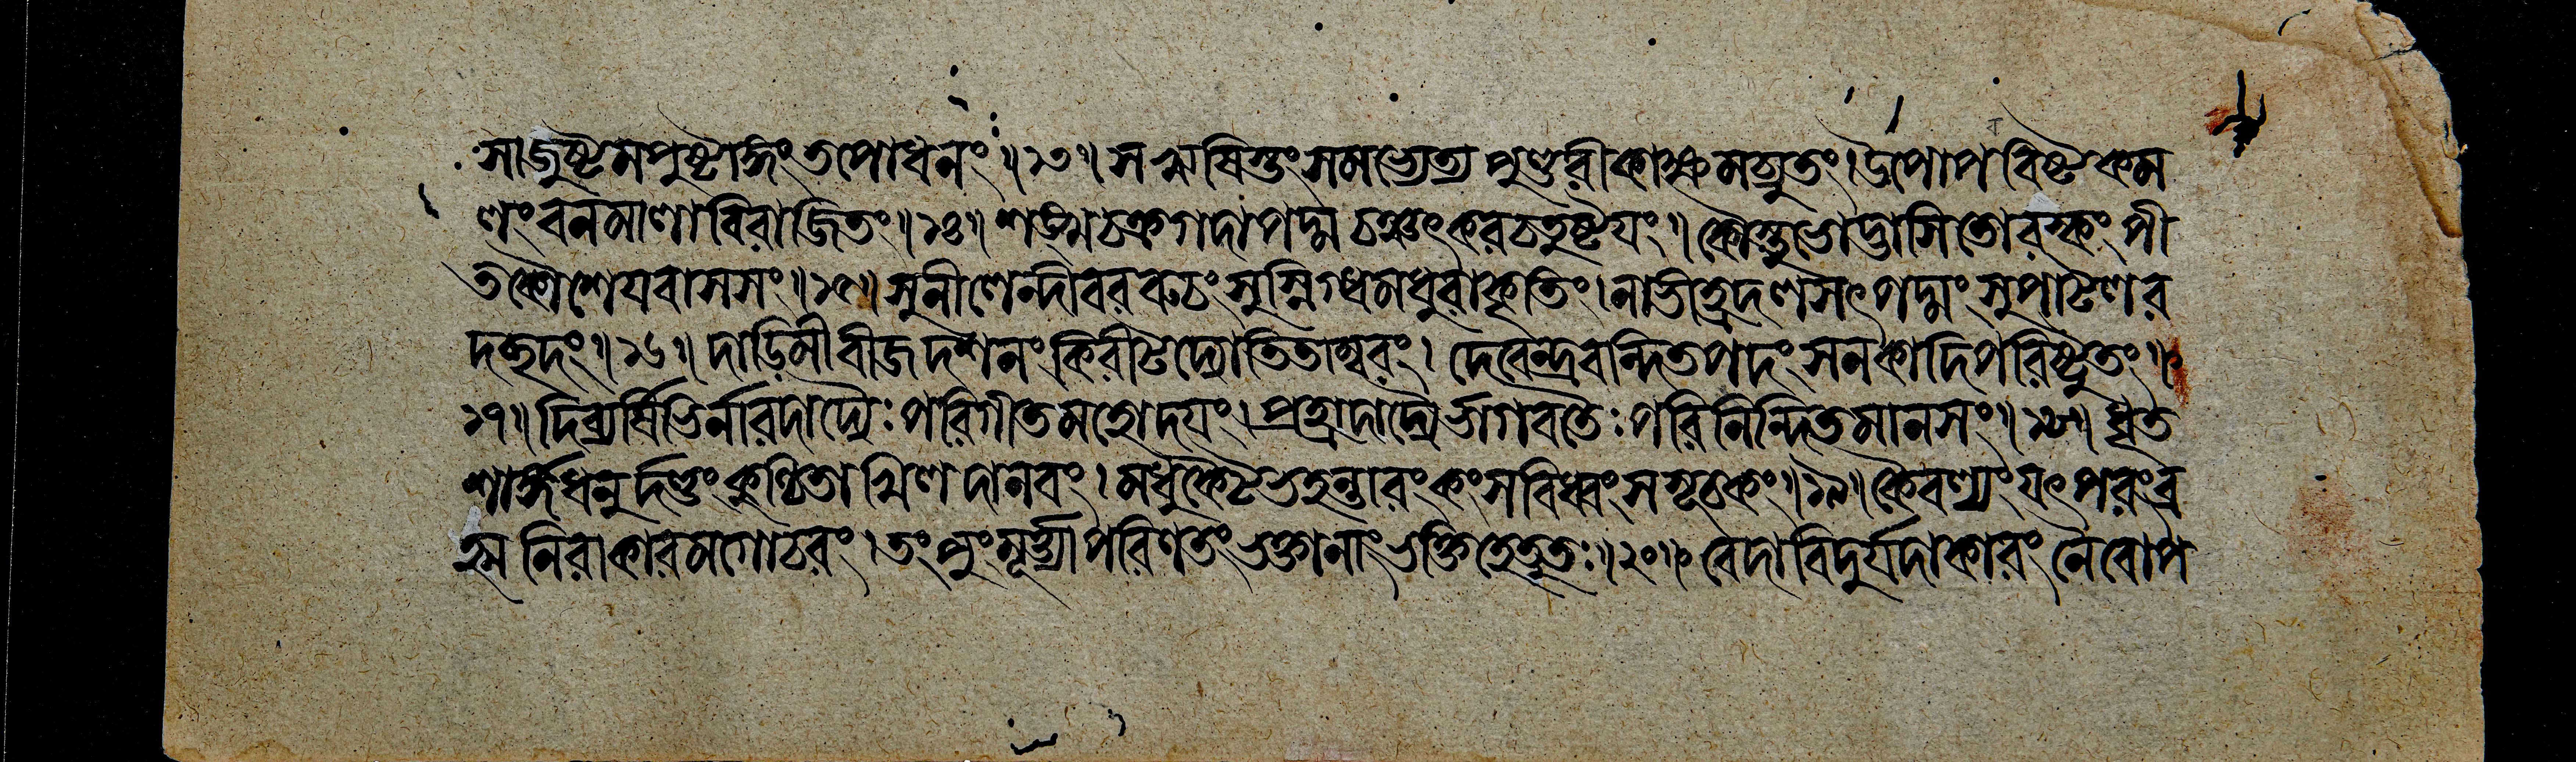 সাজুষ্টমপুষ্টাঙ্গং তপোধনং ॥ ১৩ ॥ স ঋষিস্তং সমভ্যেত্য পুণ্ডরীকাক্ষমচ্যুতং । উপোপবিষ্টকম
লং বনমালাবিরাজিতং ॥ ১৪ ॥ শঙ্খচক্রগদাপদ্মচঞ্চৎকরচতুষ্টয়ং ॥ কৌস্তুভোদ্ভাসিতোরস্কং পী
তকৌশেয়বাসসং ॥ ১৫ ॥ সুনীলেন্দীবররুচং সুস্নিগ্ধমধুরাকৃতিং । নাভীহ্রদলসৎপদ্মং সুপাটলর
দচ্ছদং ॥ ১৬ ॥ দাড়িমীবীজদশনং কিরীটদ্যোতিতাম্বরং । দেবেন্দ্রবন্দিতপদং সনকাদিপরিষ্টুতং ॥
১৭ ॥ দিব্যর্ষিভির্নারদাদ্যৈঃ পরিগীতমহোদয়ং । প্রহ্লাদাদ্যৈর্ভাগবতৈঃ পরিনিন্দিতমানসং ॥ ১৮ ॥ ধৃত
শার্ঙ্গধনুর্দণ্ডং কুণ্ঠিতাখিলদানবং । মধুকৈটভহন্তারং কংসবিধ্বংসসূচকং ॥ ১৯ ॥ কৈবল্যং যৎ পরং ব্র
হ্ম নিরাকারমগোচরং । তং পুংমূর্ত্ত্যা পরিণতং ভক্তানাং ভক্তিহেতুতঃ ॥ ২০ ॥ বেদা বিদুর্যদাকারং নৈবোপ